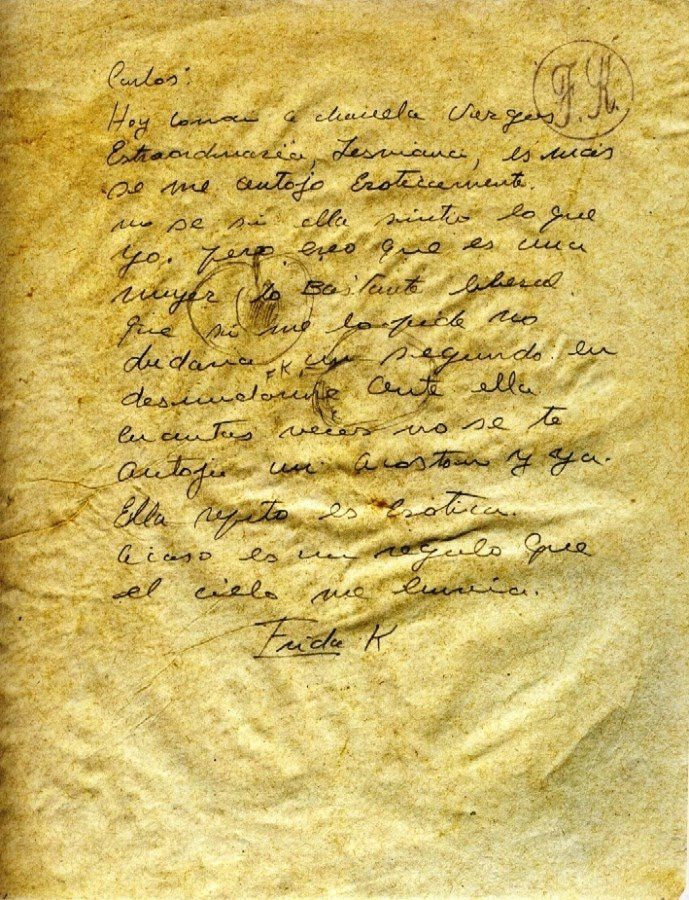 F.K.
Carlos:
Hoy conocí a chavela Vargas.
Extraordinaria, Lesviana, es más
se me antojo Eroticamente.
no se si ella sintio lo que
yo. pero creo que es una
mujer lo Bastante liberal
Que si me lo pide no
dudaria un segundo en
F.K.
desnudarme ante ella
Cuantas veces no se te
antoja un acoston y ya.
Ella repito es Erótica.
acaso es un regalo Que
el cielo me envia.
Frida K